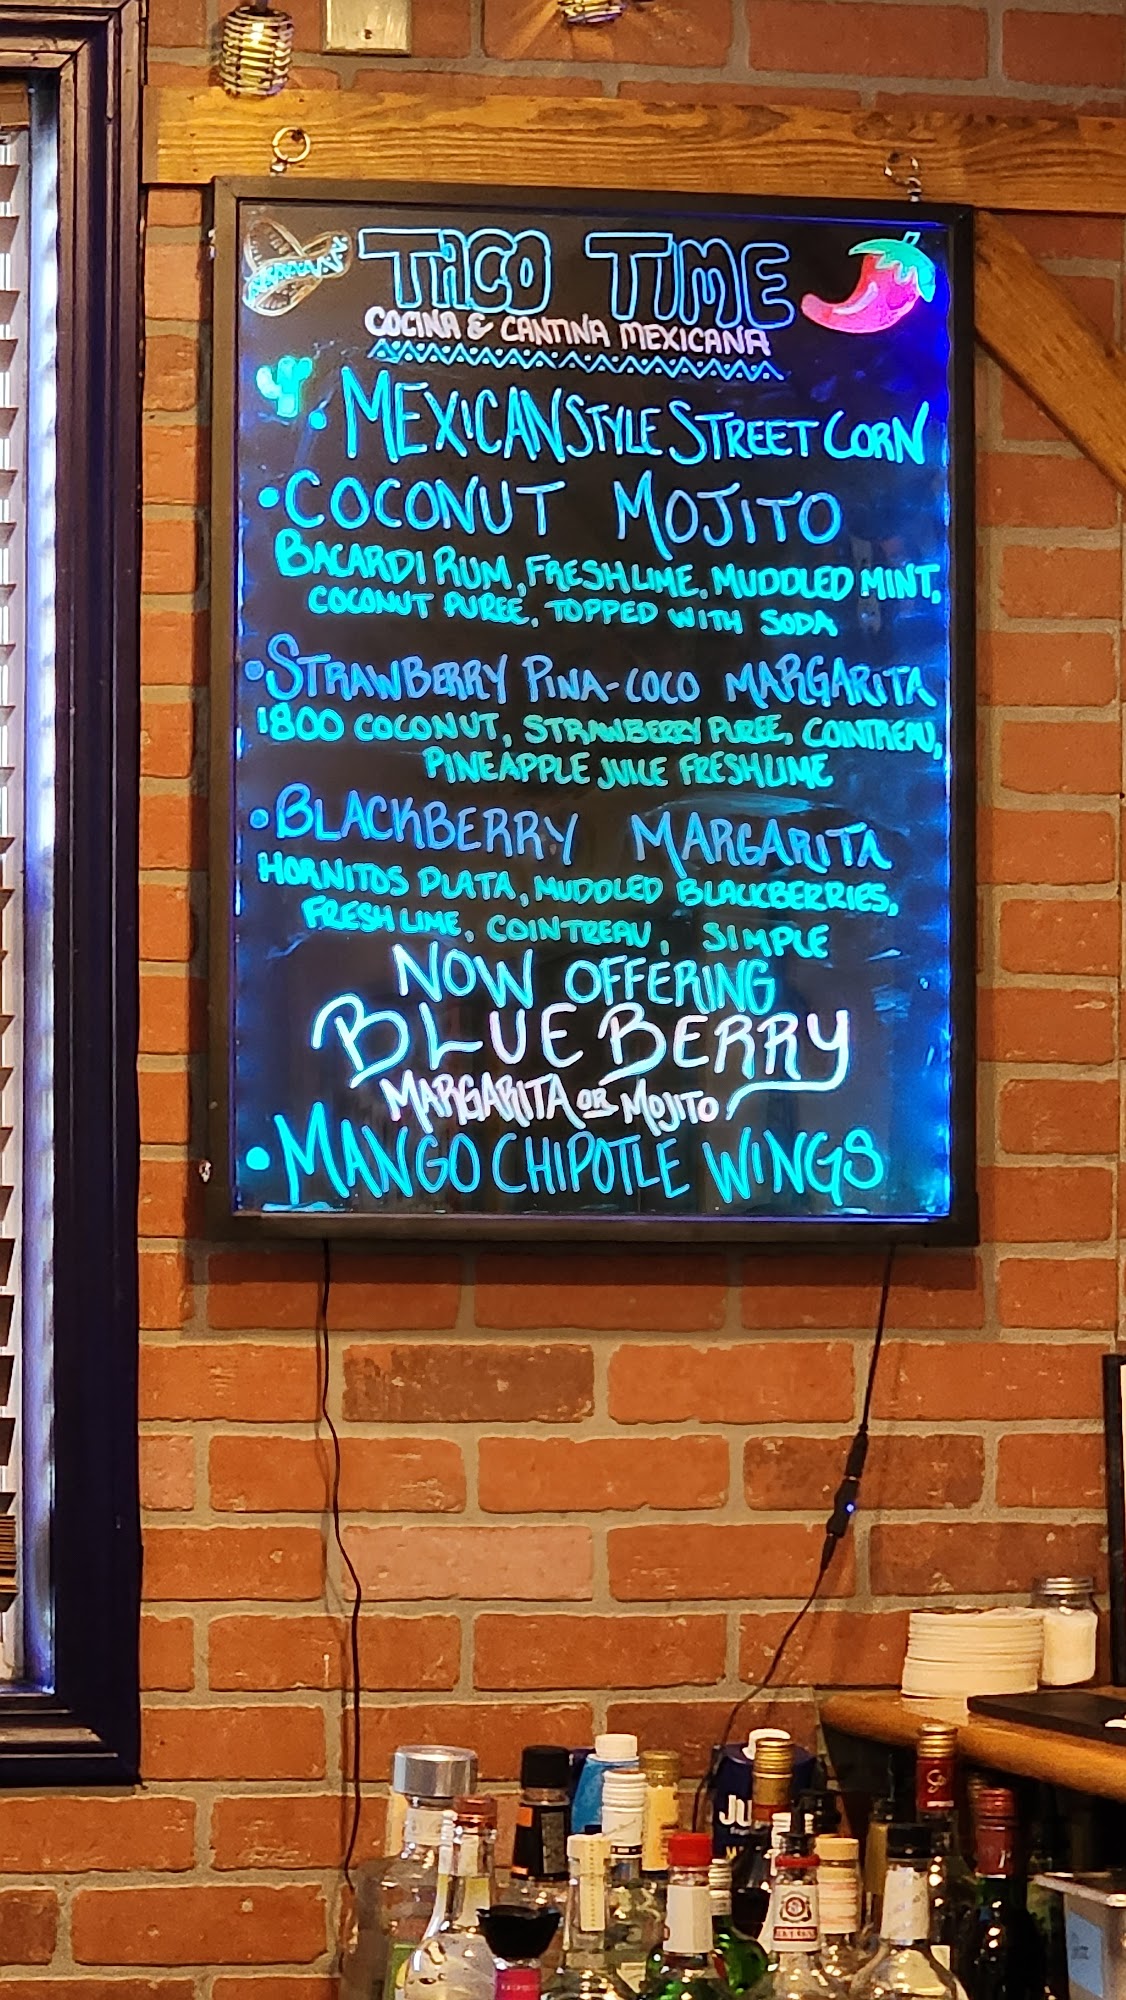 TACO TIME
COCINA & CANTINA MEXICANA
• MEXICAN STYLE STREET CORN
• COCONUT MOJITO
BACARDI RUM, FRESH LIME, MUDDLED MINT,
COCONUT PUREE, TOPPED WITH SODA
• STRAWBERRY PINA-COCO MARGARITA
1800 COCONUT, STRAWBERRY PUREE, COINTREAU,
PINEAPPLE JUICE FRESH LIME
• BLACKBERRY MARGARITA
HORNITOS PLATA, MUDDLED BLACKBERRIES,
FRESH LIME, COINTREAU, SIMPLE
NOW OFFERING
BLUEBERRY
MARGARITA OR MOJITO
• MANGO CHIPOTLE WINGS